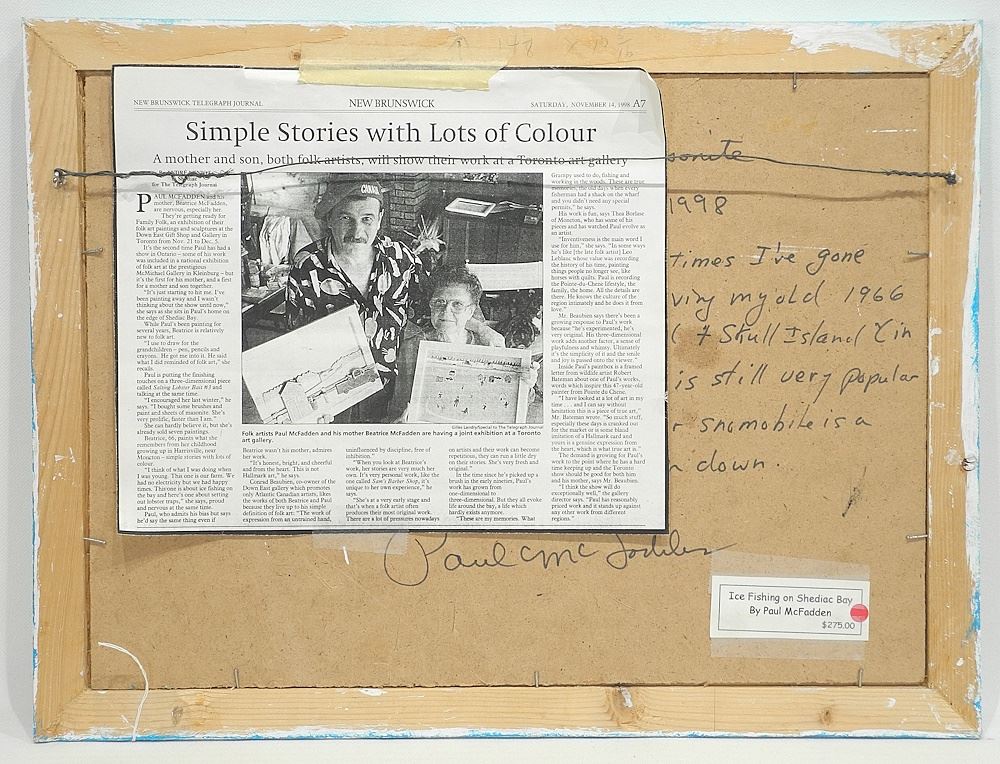 NEW BRUNSWICK TELEGRAPH JOURNAL
NEW BRUNSWICK
SATURDAY, NOVEMBER 14, 1998 A7
Simple Stories with Lots of Colour
A mother and son, both folk artists, will show their work at a Toronto art gallery
for The Telegraph Journal
PAUL MCFADDEN and his
mother, Beatrice McFadden,
are nervous, especially her.
They're getting ready for
Family Folk, an exhibition of their
folk art paintings and sculptures at the
Down East Gift Shop and Gallery in
Toronto from Nov. 21 to Dec. 5.
It's the second time Paul has had a
show in Ontario – some of his work
was included in a national exhibition
of folk art at the prestigious
McMichael Gallery in Kleinburg – but
it's the first for his mother, and a first
for a mother and son together.
"It's just starting to hit me. I've
been painting away and I wasn't
thinking about the show until now,"
she says as she sits in Paul's home on
the edge of Shediac Bay.
While Paul's been painting for
several years, Beatrice is relatively
new to folk art.
"I use to draw for the
grandchildren – pen, pencils and
crayons. He got me into it. He said
what I did reminded of folk art," she
recalls.
Paul is putting the finishing
touches on a three-dimensional piece
called Salting Lobster Bait #3 and
talking at the same time.
"I encouraged her last winter," he
says. "I bought some brushes and
paint and sheets of masonite. She's
very prolific, faster than I am."
She can hardly believe it, but she's
already sold seven paintings.
Beatrice, 66, paints what she
remembers from her childhood
growing up in Harrisville, near
Moncton – simple stories with lots of
colour.
"I think of what I was doing when
I was young. This one is our farm. We
had no electricity but we had happy
times. This one is about ice fishing on
the bay and here's one about setting
out lobster traps," she says, proud
and nervous at the same time.
Paul, who admits his bias but says
he'd say the same thing even if
CANADA
Gilles Landry/Special to The Telegraph Journal
Folk artists Paul McFadden and his mother Beatrice McFadden are having a joint exhibition at a Toronto
art gallery.
Beatrice wasn't his mother, admires
her work.
"It's honest, bright, and cheerful
and from the heart. This is not
Hallmark art," he says.
Conrad Beaubien, co-owner of the
Down East gallery which promotes
only Atlantic Canadian artists, likes
the works of both Beatrice and Paul
because they live up to his simple
definition of folk art: "The work of
expression from an untrained hand,
uninfluenced by discipline, free of
inhibition."
"When you look at Beatrice's
work, her stories are very much her
own. It's very personal work, like the
one called Sam's Barber Shop, it's
unique to her own experience," he
says.
"She's at a very early stage and
that's when a folk artist often
produces their most original work.
There are a lot of pressures nowadays
on artists and their work can become
repetitious, they can run a little dry
on their stories. She's very fresh and
original."
In the time since he's picked up a
brush in the early nineties, Paul's
work has grown from
one-dimensional to
three-dimensional. But they all evoke
life around the bay, a life which
hardly exists anymore.
"These are my memories. What
Grampy used to do, fishing and
working in the woods. These are true
memories, the old days when every
fisherman had a shack on the wharf
and you didn't need any special
permits," he says.
His work is fun, says Thea Borlase
of Moncton, who has some of his
pieces and has watched Paul evolve as
an artist.
"Inventiveness is the main word I
use for him," she says. "In some ways
he's like [the late folk artist] Leo
Leblanc whose value was recording
the history of his time, painting
things people no longer see, like
horses with quilts. Paul is recording
the Pointe-du-Chene lifestyle, the
family, the home. All the details are
there. He knows the culture of the
region intimately and he does it from
love."
Mr. Beaubien says there's been a
growing response to Paul's work
because "he's experimented, he's
very original. His three-dimensional
work adds another factor, a sense of
playfulness and whimsy. Ultimately
it's the simplicity of it and the smile
and joy is passed onto the viewer."
Inside Paul's paintbox is a framed
letter from wildlife artist Robert
Bateman about one of Paul's works,
words which inspire this 47-year-old
painter from Pointe du Chene.
"I have looked at a lot of art in my
time . . . and I can say without
hesitation this is a piece of true art,"
Mr. Bateman wrote. "So much stuff,
especially these days is cranked out
for the market or is some bland
imitation of a Hallmark card and
yours is a genuine expression from
the heart, which is what true art is."
The demand is growing for Paul's
work to the point where he has a hard
time keeping up and the Toronto
show should be good for both him
and his mother, says Mr. Beaubien.
"I think the show will do
exceptionally well," the gallery
director says. "Paul has reasonably
priced work and it stands up against
any other work from different
regions."
sonite
1998
times I've gone
ving my old 1966
( + Skull Island (in
is still very popular
r snomobile is a
n down.
Paul McFadden
Ice Fishing on Shediac Bay
By Paul McFadden
$275.00